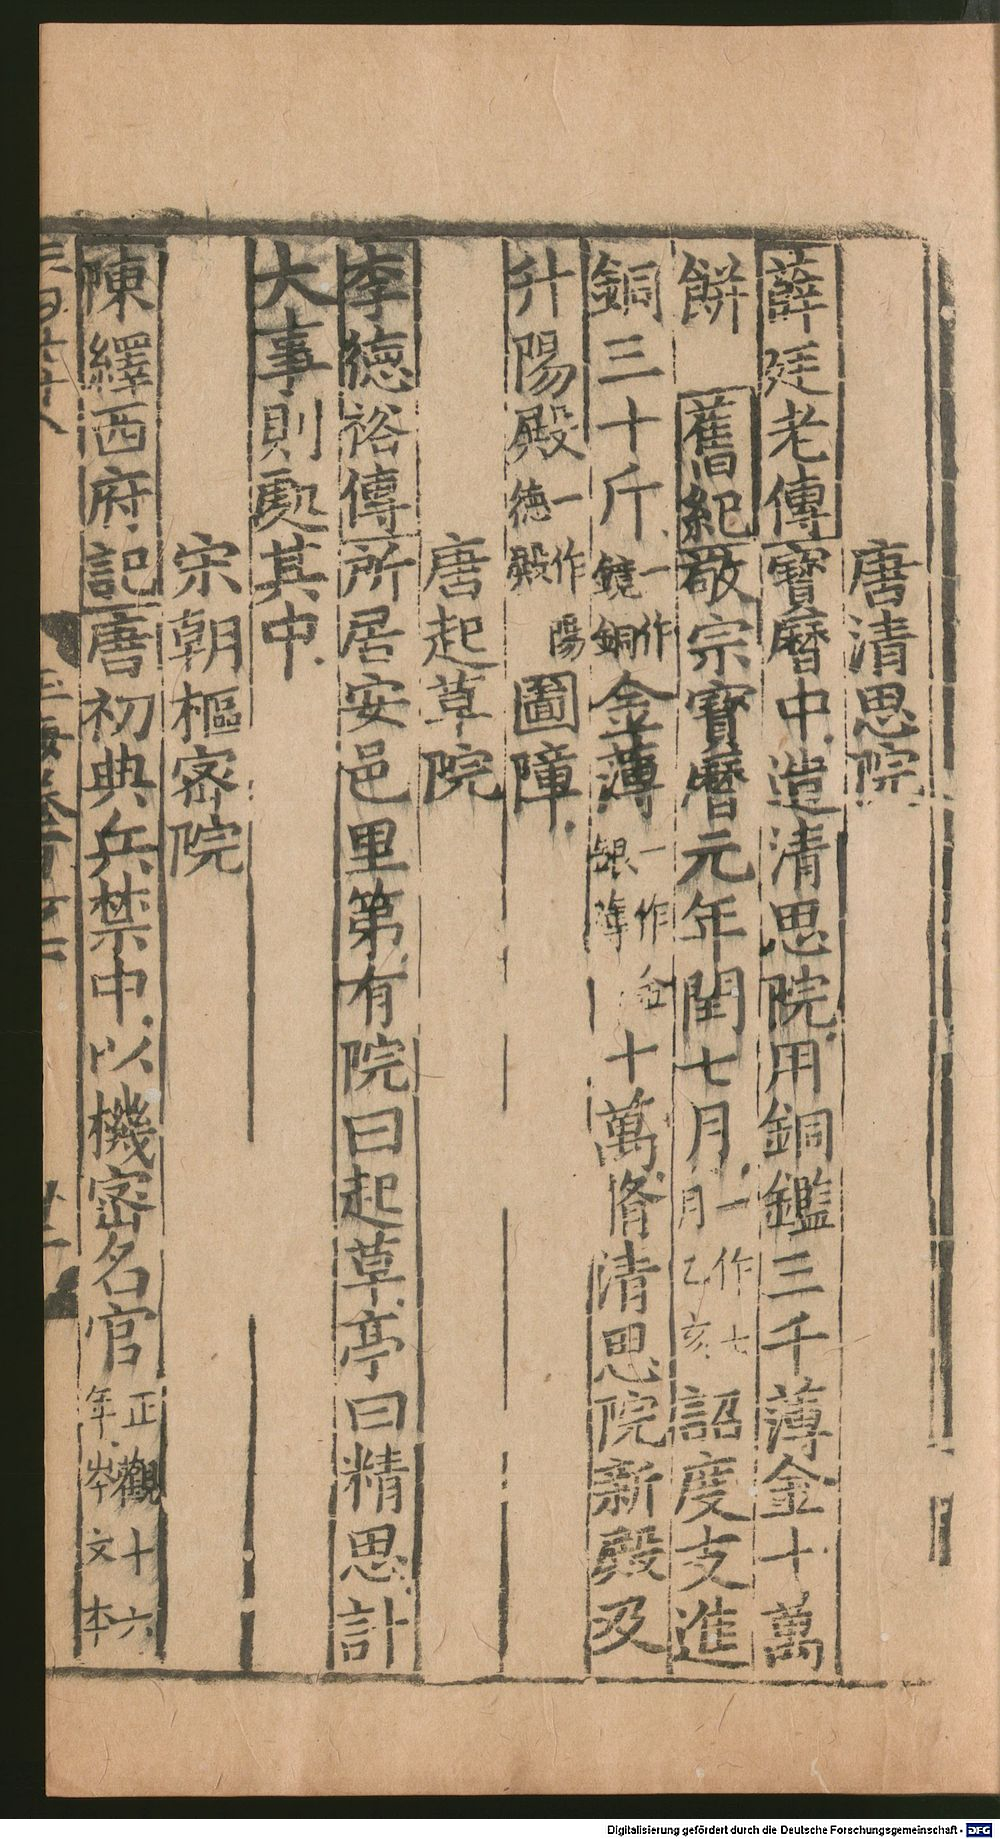 唐清思院
薛廷老傳寶曆中造清思院用銅鑑三千薄金十萬
餅　舊紀敬宗寶曆元年閏七月一作七月乙亥詔度支進
銅三十斤一作鏡銅金薄一作金銀薄十萬脩清思院新殿及
升陽殿一作陽德殿圖障
唐起草院
李德裕傳所居安邑里第有院曰起草亭曰精思計
大事則處其中
宋朝樞密院
陳繹西府記唐初典兵禁中以機密名官正觀十六年岑文本
Digitalisierung gefördert durch die Deutsche Forschungsgemeinschaft - DFG